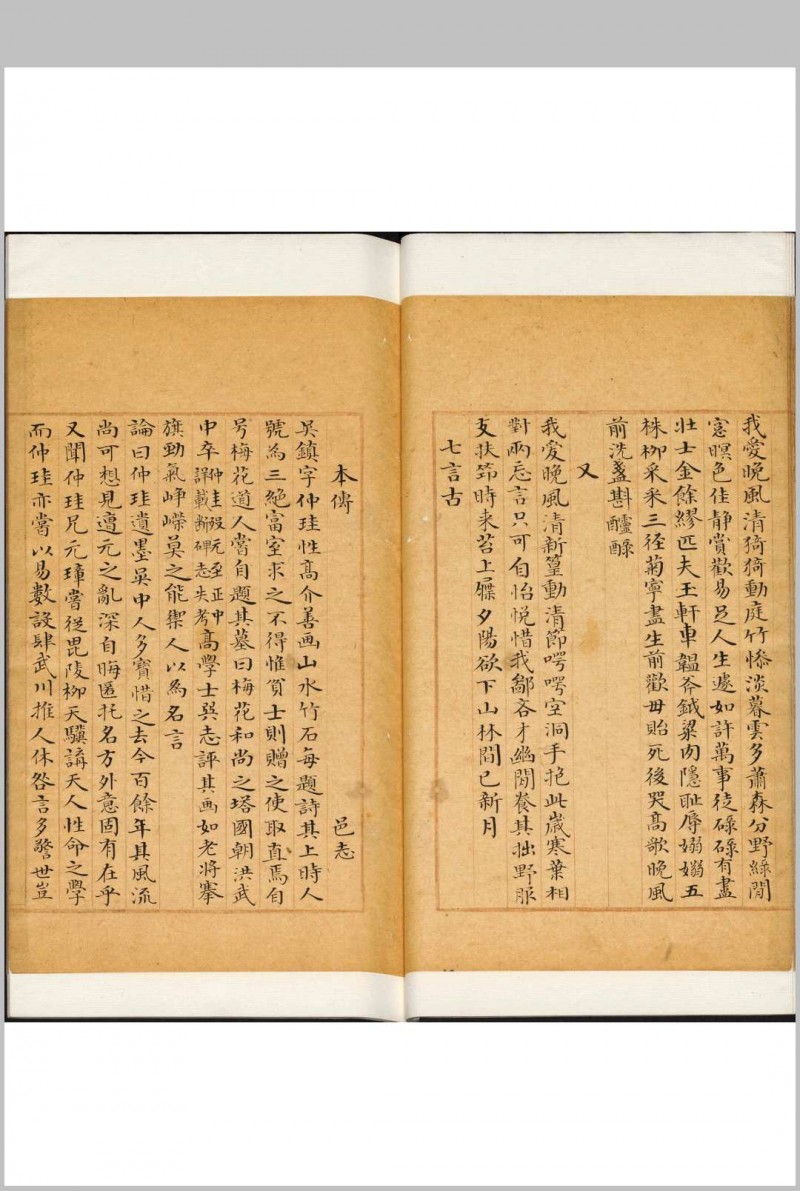 我愛晚風清猗猗動庭竹慘淡暮雲多蕭森分野綠閒
窻暝色佳靜賞歡易足人生遽如許萬事徒碌碌有盡
壯士金餘繆匹夫玉軒車韞斧鉞粱肉隱恥辱嫋嫋五
株柳采采三徑菊寧盡生前歡毋貽死後哭高歌晚風
前洗盞斟醽醁
又
我愛晚風清新篁動清節㖾㖾空洞手抱此歲寒葉相
對兩忘言只可自怡悅惜我鄙吝才幽閒養其拙野服
支扶筇時来苔上屧夕陽欲下山林間已新月
七言古
本傳 邑志
吳鎮字仲珪性高介善画山水竹石每題詩其上時人
號為三絶富室求之不得惟貧士則贈之使取直焉自
号梅花道人嘗自題其墓曰梅花和尚之塔國朝洪武
中卒仲珪殁元至正中詳載断碑志失考高學士巽志評其画如老將搴
旗勁氣崢嶸莫之能禦人以為名言
論曰仲珪遺墨吳中人多寶惜之去今百餘年其風流
尚可想見遭元之亂深自晦匿托名方外意固有在乎
又聞仲珪兄元璋嘗從毘陵柳天驥講天人性命之學
而仲珪亦嘗以易數設肆武川推人休咎言多警世豈